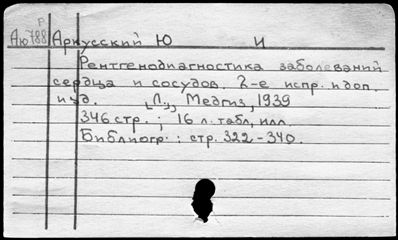 Р
Аю788 Аркусский Ю И
Рентгенодиагностика заболеваний
сердца и сосудов. 2-е испр. и доп.
изд. [Л.], Медгиз, 1939
346 стр.; 16 л. табл, илл.
Библиогр.: стр. 322-340.